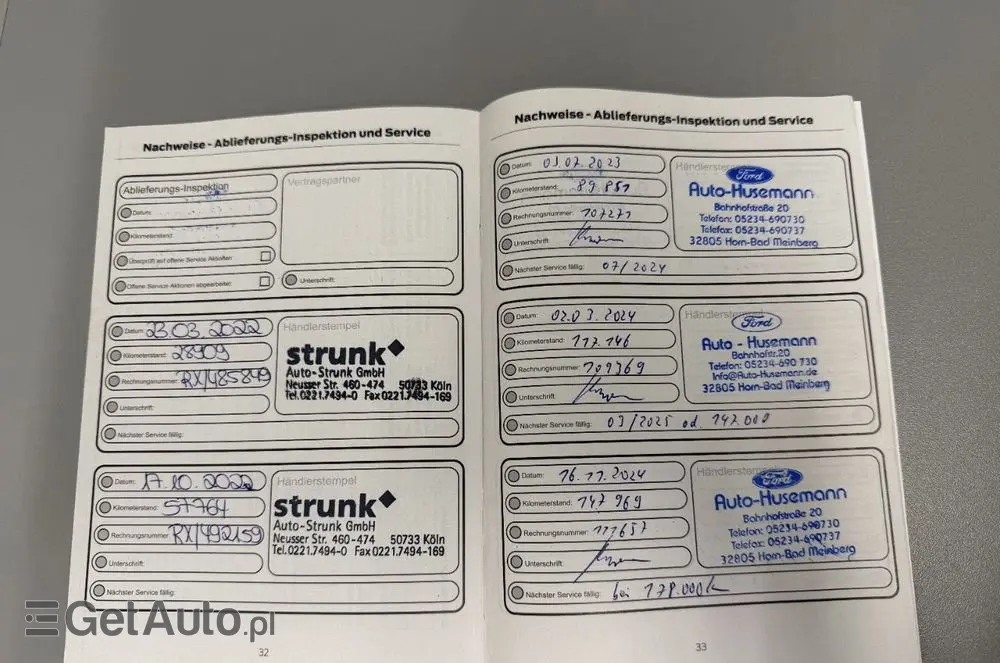 Nachweise - Ablieferungs-Inspektion und Service
Ablieferungs-Inspektion
Datum:
Kilometerstand:
Überprüft auf offene Service Aktionen
Offene Service Aktionen abgearbeitet:
Vertragspartner
Unterschrift:
Datum: 23.03.2022
Kilometerstand: 28909
Rechnungsnummer: RX/485849
Unterschrift:
Nächster Service fällig:
Händlerstempel
strunk
Auto-Strunk GmbH
Neusser Str. 460-474 50733 Köln
Tel.0221.7494-0 Fax0221.7494-169
Datum: 17.10.2022
Kilometerstand: 57764
Rechnungsnummer: RX/492159
Unterschrift:
Nächster Service fällig:
Händlerstempel
strunk
Auto-Strunk GmbH
Neusser Str. 460-474 50733 Köln
Tel.0221.7494-0 Fax0221.7494-169
32
Nachweise - Ablieferungs-Inspektion und Service
Datum: 03.07.2023
Kilometerstand: 89.851
Rechnungsnummer: 107271
Unterschrift:
Nächster Service fällig: 07/2024
Händlerstempel
Ford
Auto-Husemann
Bahnhofstraße 20
Telefon: 05234-690730
Telefax: 05234-690737
32805 Horn-Bad Meinberg
Datum: 02.03.2024
Kilometerstand: 117.146
Rechnungsnummer: 109369
Unterschrift:
Nächster Service fällig: 03/2025 od. 147.000
Händlerstempel
Ford
Auto - Husemann
Bahnhofstr.20
Telefon: 05234-690 730
Info@Auto-Husemann.de
32805 Horn-Bad Meinberg
Datum: 16.11.2024
Kilometerstand: 147 969
Rechnungsnummer: 111657
Unterschrift:
Nächster Service fällig: bei 178.000k
Händlerstempel
Ford
Auto-Husemann
Bahnhofstraße 20
Telefon: 05234-690730
Telefax: 05234-690737
32805 Horn-Bad Meinberg
33
GetAuto.pl